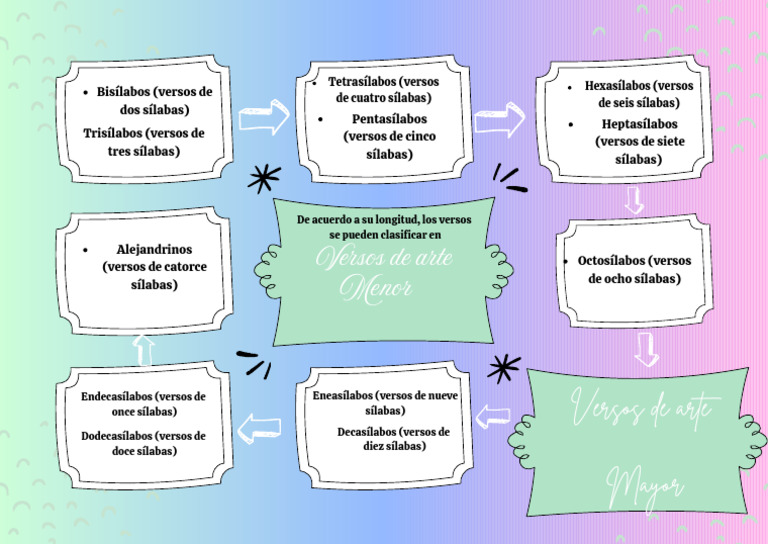 • Bisílabos (versos de
dos sílabas)
Trisílabos (versos de
tres sílabas)
• Tetrasílabos (versos
de cuatro sílabas)
• Pentasílabos
(versos de cinco
sílabas)
• Hexasílabos (versos
de seis sílabas)
• Heptasílabos
(versos de siete
sílabas)
• Alejandrinos
(versos de catorce
sílabas)
De acuerdo a su longitud, los versos
se pueden clasificar en
Versos de arte
Menor
• Octosílabos (versos
de ocho sílabas)
Endecasílabos (versos de
once sílabas)
Dodecasílabos (versos de
doce sílabas)
Eneasílabos (versos de nueve
sílabas)
Decasílabos (versos de
diez sílabas)
Versos de arte
Mayor